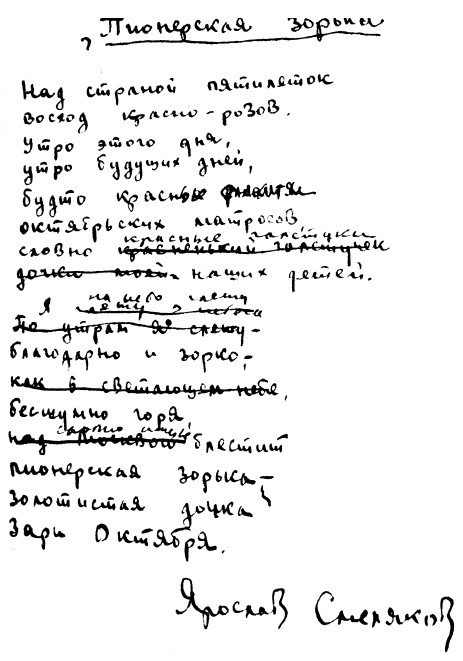 Пионерская зорька
Над страной пятилеток
восход красно-розов.
Утро этого дня,
утро будущих дней,
будто красные
октябрьских матросов
красные галстуки
словно красненький галстучек
дочки моей наших детей.
на небо гляжу
Я
По утрам я слежу -
благодарно и зорко,-
как в светающем небе,
бесшумно горя
над Москвою блестит
пионерская зорька -
золотистая дочка
Зари Октября.
Ярослав Смеляков